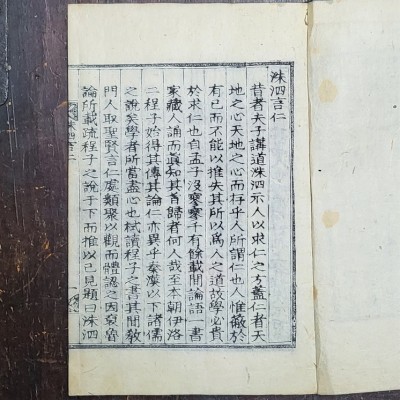 洙泗言仁
昔者夫子講道洙泗示人以求仁之方蓋仁者天
地之心天地之心而存乎人所謂仁也人惟蔽於
有已而不能以推失其所以爲人之道故學必貴
於求仁也自孟子沒寥寥千有餘載間論語一書
家藏人誦而眞知其首歸者何人哉至本朝伊洛
二程子始得其傳其論仁亦異乎秦漢以下諸儒
之說矣學者所當盡心也栻讀程子之書其間敎
門人取聖賢言仁處類聚以觀而體認之因裒魯
論所載疏程子之說于下而推以己見題曰洙泗